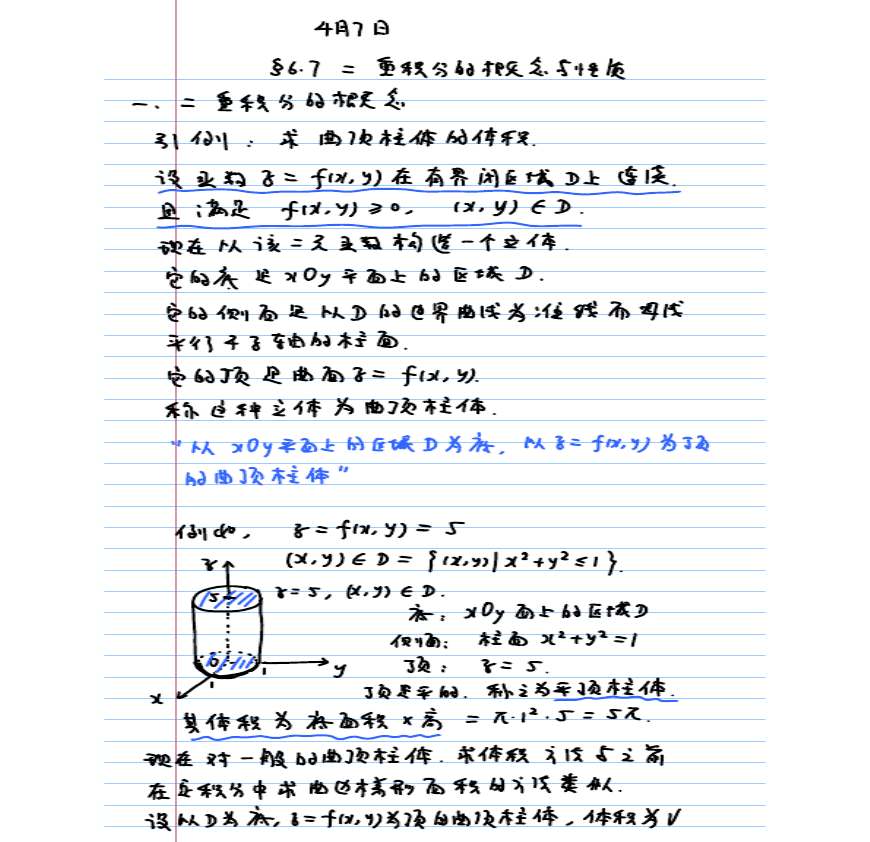 4月7日
§6.7 二重积分的概念与性质
一. 二重积分的概念
引例: 求曲顶柱体的体积.
设函数 z = f(x, y) 在有界闭区域 D上 连续.
且满足 f(x, y) ≥ 0, (x, y) ∈ D.
现在以该二元函数构造一个立体.
它的底是xOy平面上的区域 D.
它的侧面是以D的边界曲线为准线而母线
平行于z轴的柱面.
它的顶是曲面z = f(x, y).
称这种立体为曲顶柱体.
“以 xOy平面上的区域D为底, 以z = f(x, y)为顶
的曲顶柱体”
例如, z = f(x, y) = 5
(x, y) ∈ D = {(x, y) | x² + y² ≤ 1}.
z
5
z = 5, (x, y) ∈ D.
底: xOy面上的区域D
侧面: 柱面 x² + y² = 1
0
1
1
y
x
顶: z = 5.
顶是平的. 称之为平顶柱体.
其体积为 底面积 × 高 = π·1²·5 = 5π.
现在对一般的曲顶柱体. 求体积方法与之前
在定积分中求曲边梯形面积的方法类似.
设以D为底, z = f(x, y)为顶的曲顶柱体, 体积为V